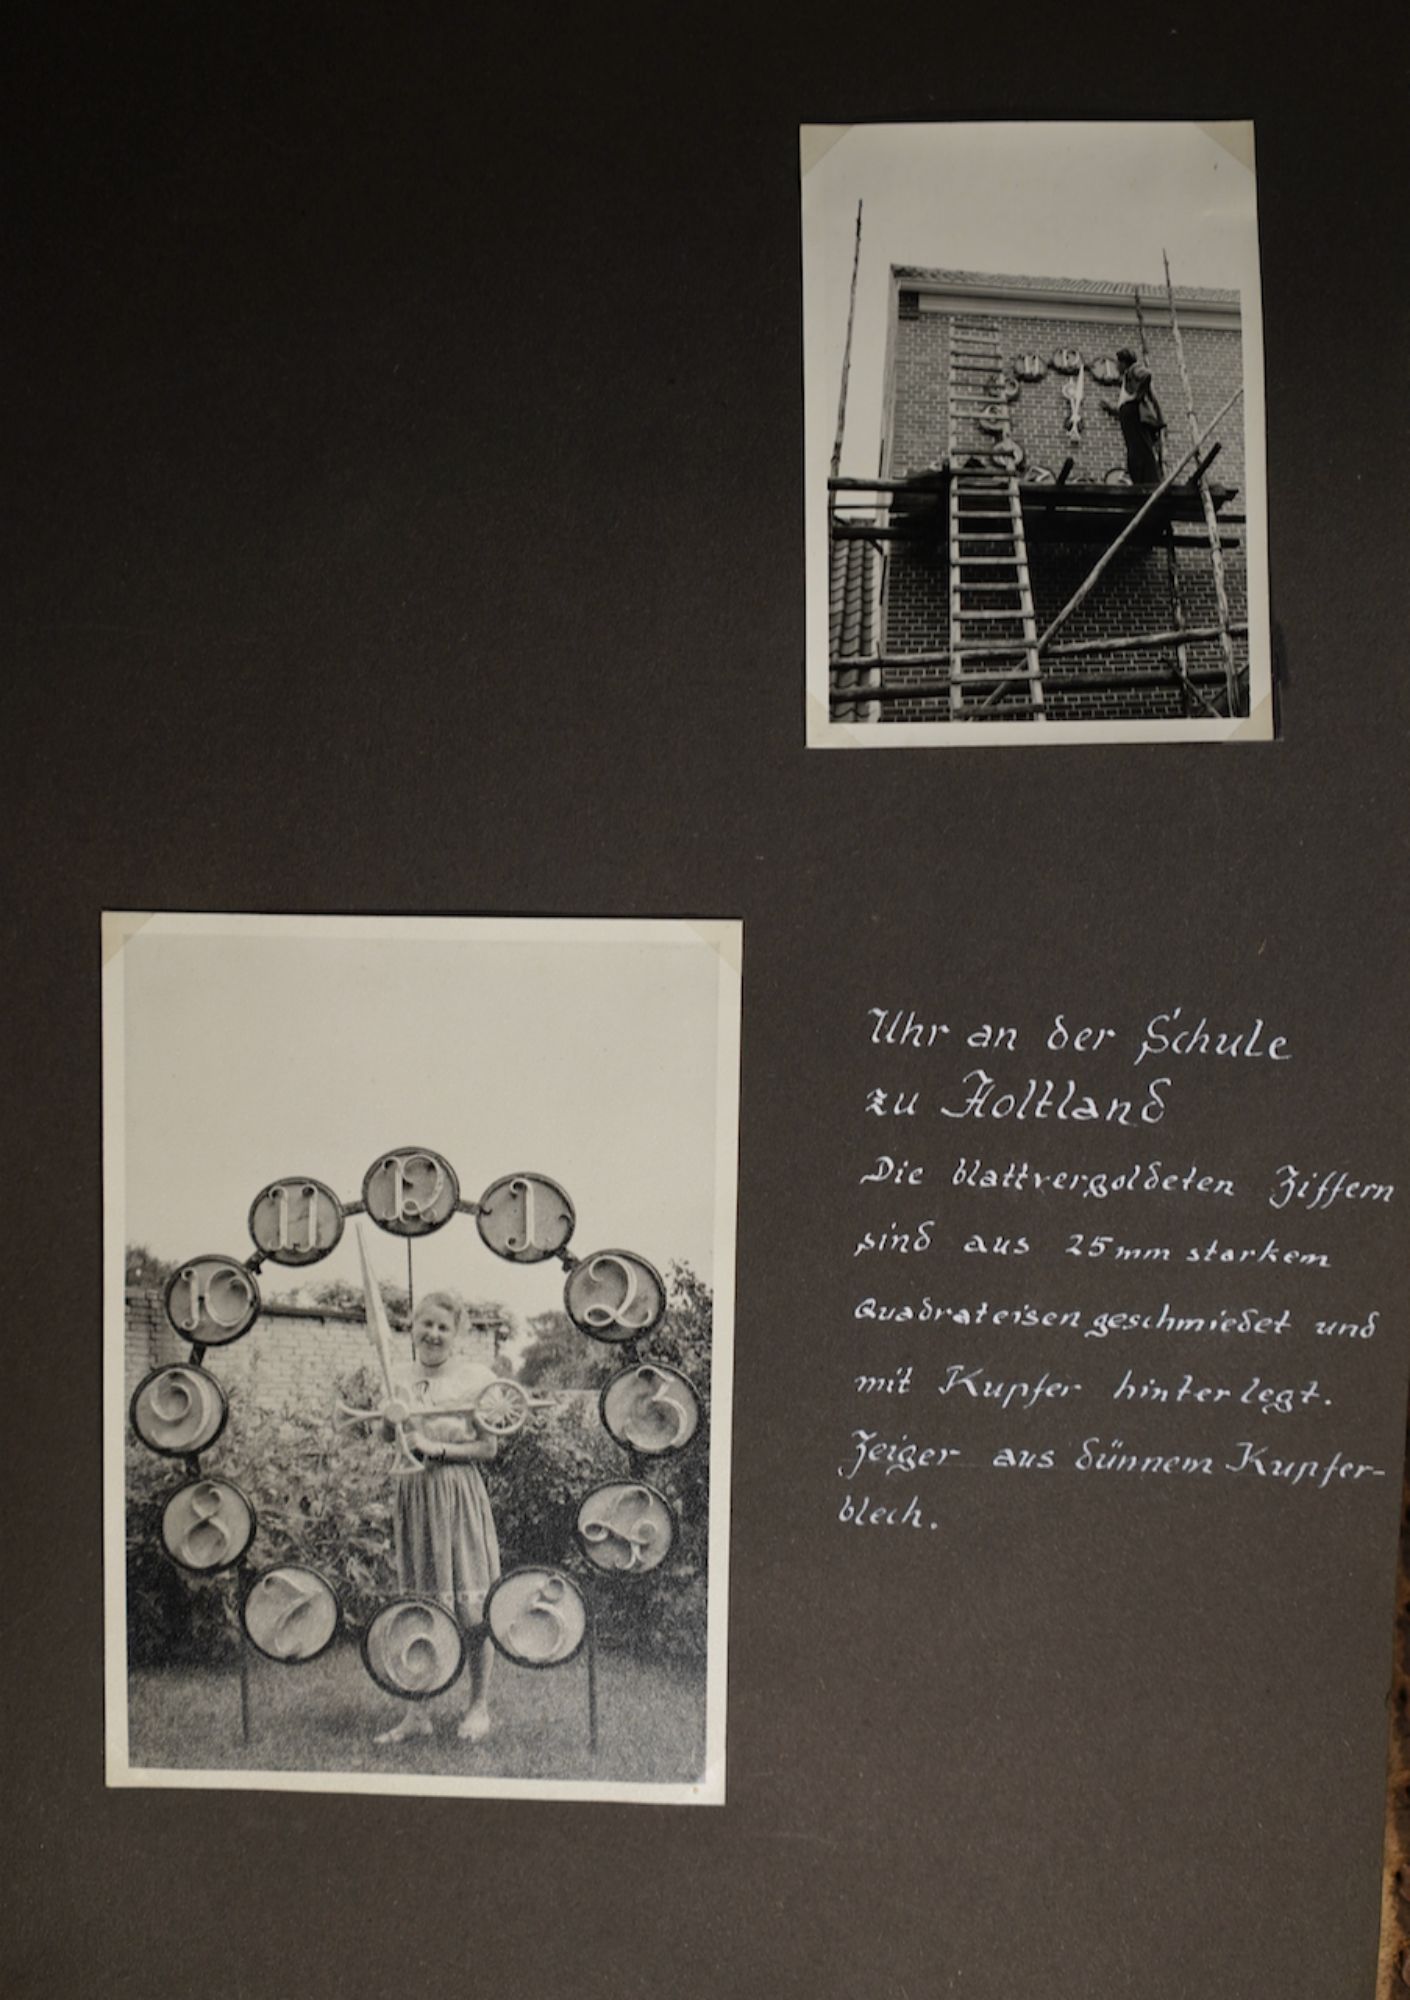 11
12
1
10
2
9
3
8
4
7
6
5
Uhr an der Schule
zu Holtland
Die blattvergoldeten Ziffern
sind aus 25mm starkem
Quadrateisen geschmiedet und
mit Kupfer hinterlegt.
Zeiger aus dünnem Kupfer-
blech.